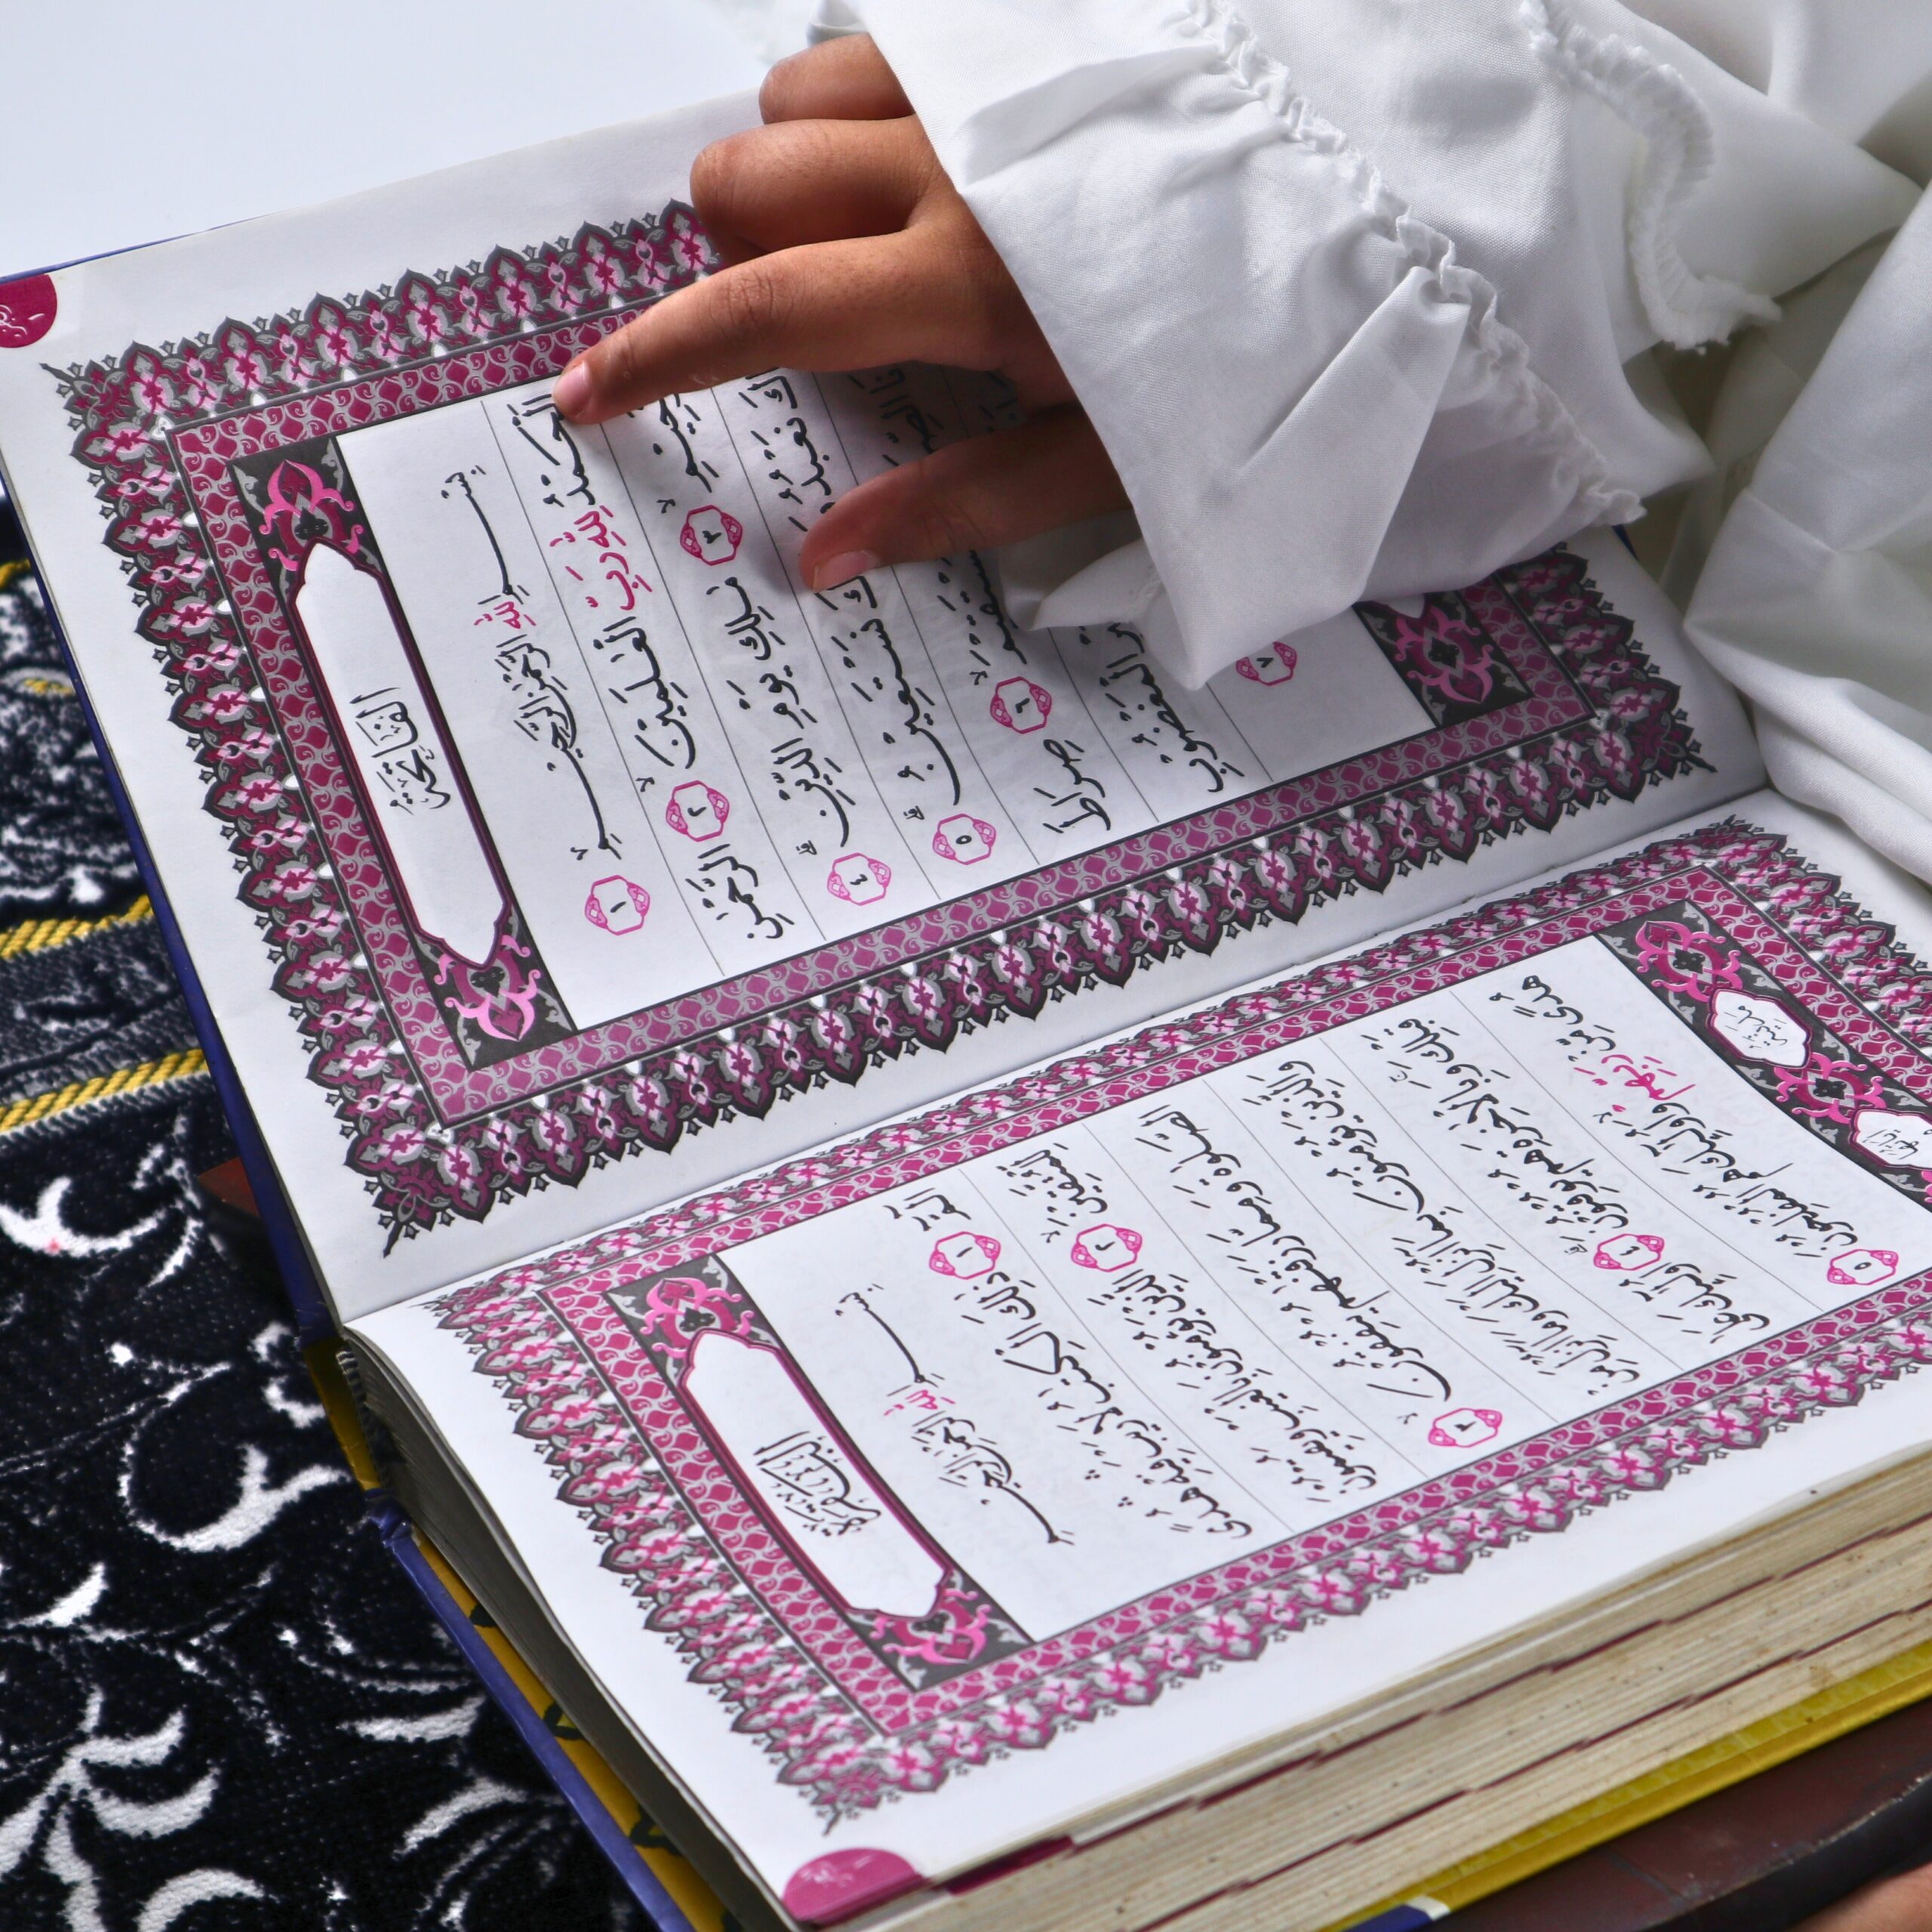 الفَاتِحَة
بِسْمِ اللهِ الرَّحْمٰنِ الرَّحِيْمِ ۝١
اَلْحَمْدُ لِلهِ رَبِّ الْعٰلَمِيْنَ ۝٢ الرَّحْمٰنِ
حِيْمِ ۝٣ مٰلِكِ يَوْمِ الدِّيْنِ ۝٤
كَ نَعْبُدُ نَسْتَعِيْنُ ۝٥
۝٦ صِرَاطَ
الْمَغْضُوْبِ
۝٧
البَقَرَة
بِسْمِ اللهِ الرَّحْمٰنِ الرَّحِيْمِ
الٓمّٓ ۝١ ذٰلِكَ الْكِتٰبُ لَا رَيْبَ فِيْهِ هُدًى
لِّلْمُتَّقِيْنَ ۝٢ الَّذِيْنَ يُؤْمِنُوْنَ بِالْغَيْبِ وَيُقِيْمُوْنَ
الصَّلٰوةَ وَمِمَّا رَزَقْنٰهُمْ يُنْفِقُوْنَ ۝٣
وَالَّذِيْنَ يُؤْمِنُوْنَ بِمَآ اُنْزِلَ اِلَيْكَ وَمَآ اُنْزِلَ مِنْ
قَبْلِكَ وَبِالْاٰخِرَةِ هُمْ يُوْقِنُوْنَ ۝٤ اُولٰٓئِكَ عَلٰى
هُدًى مِّنْ رَّبِّهِمْ وَاُولٰٓئِكَ هُمُ الْمُفْلِحُوْنَ ۝٥